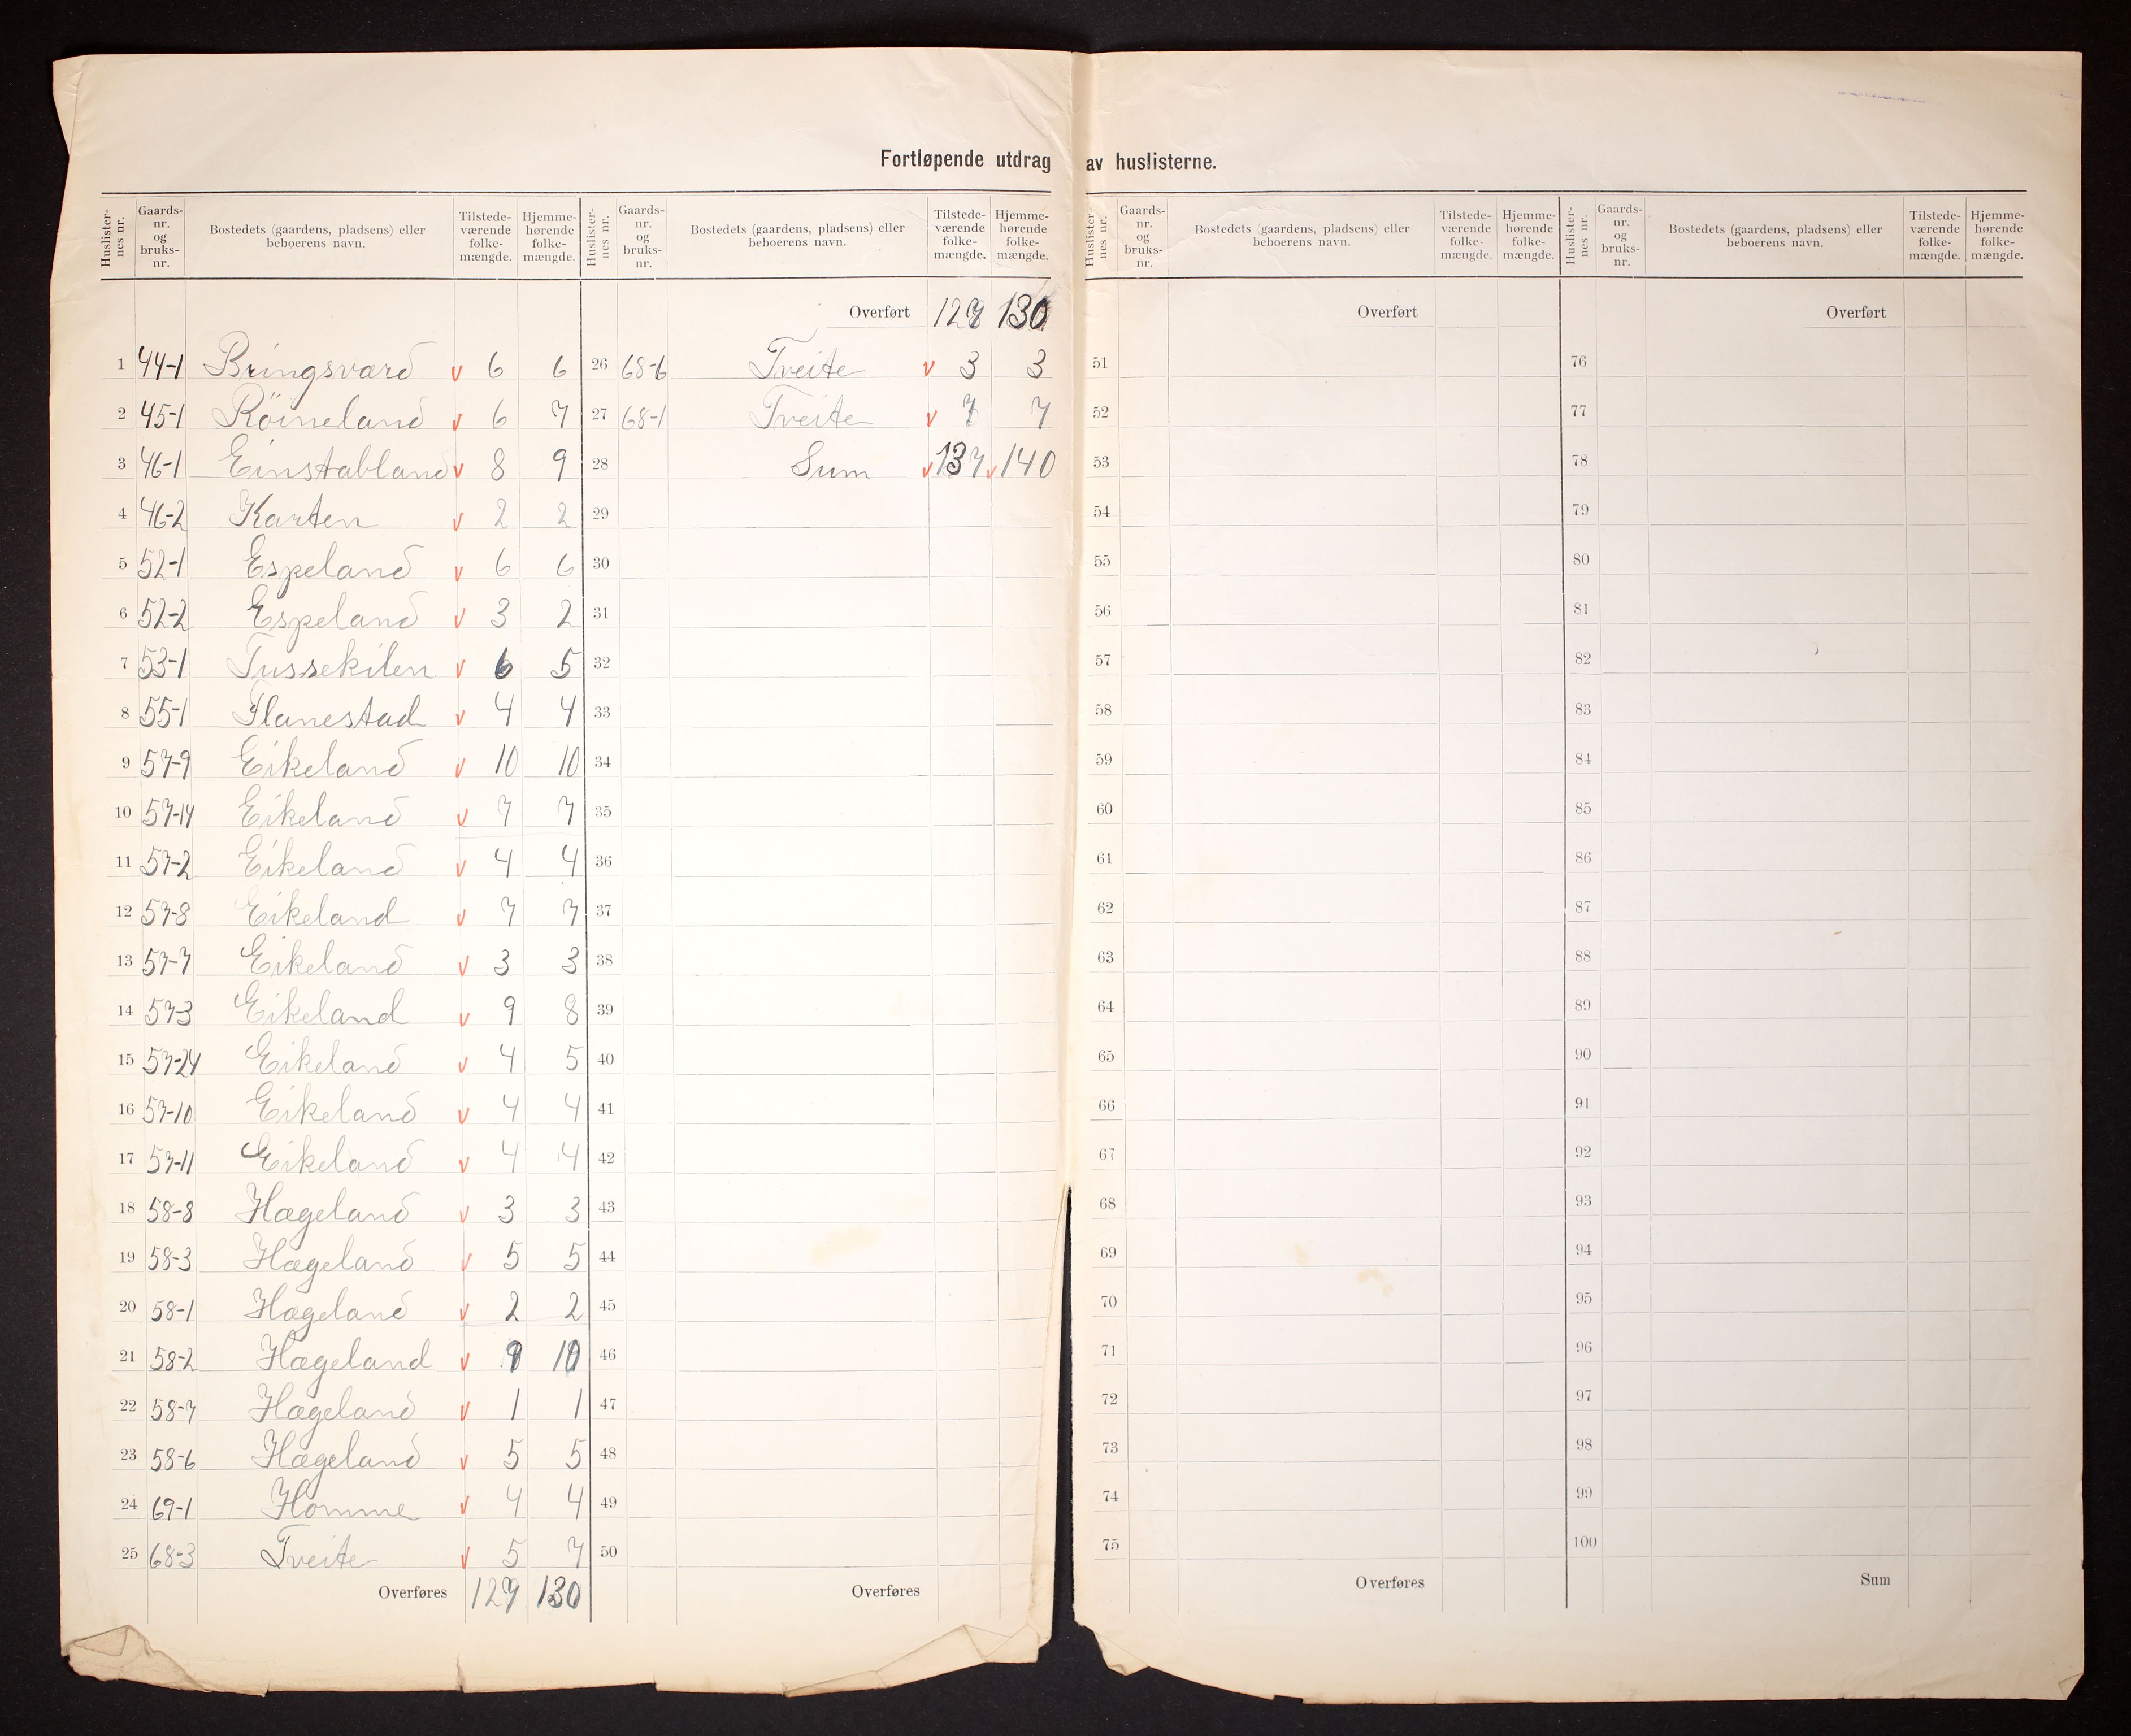 Fortløpende utdrag av huslisterne.
Huslister-nes nr. Gaards-nr. og bruks-nr. Bostedets (gaardens, pladsens) eller beboerens navn. Tilstede-værende folke-mængde. Hjemme-hørende folke-mængde.
1 44-1 Bringsværd v 6 6
2 45-1 Röineland v 6 7
3 46-1 Einstabland v 8 9
4 46-2 Karten v 2 2
5 52-1 Espeland v 6 6
6 52-2 Espeland v 3 2
7 53-1 Tussekilen v 6 5
8 55-1 Flanestad v 4 4
9 57-9 Eikeland v 10 10
10 57-14 Eikeland v 7 7
11 57-2 Eikeland v 4 4
12 57-8 Eikeland v 7 7
13 57-7 Eikeland v 3 3
14 57-3 Eikeland v 9 8
15 57-24 Eikeland v 4 5
16 57-10 Eikeland v 4 4
17 57-11 Eikeland v 4 4
18 58-8 Hægeland v 3 3
19 58-3 Hægeland v 5 5
20 58-1 Hægeland v 2 2
21 58-2 Hægeland v 9 10
22 58-7 Hægeland v 1 1
23 58-6 Hægeland v 5 5
24 69-1 Homme v 4 4
25 68-3 Tveite v 5 7
Overføres 127 130
Huslister-nes nr. Gaards-nr. og bruks-nr. Bostedets (gaardens, pladsens) eller beboerens navn. Tilstede-værende folke-mængde. Hjemme-hørende folke-mængde.
Overført 127 130
26 68-6 Tveite v 3 3
27 68-1 Tveite v 7 7
28 Sum v 137 v 140
29
30
31
32
33
34
35
36
37
38
39
40
41
42
43
44
45
46
47
48
49
50
Overføres
Huslister-nes nr. Gaards-nr. og bruks-nr. Bostedets (gaardens, pladsens) eller beboerens navn. Tilstede-værende folke-mængde. Hjemme-hørende folke-mængde.
Overført
51
52
53
54
55
56
57
58
59
60
61
62
63
64
65
66
67
68
69
70
71
72
73
74
75
Overføres
Huslister-nes nr. Gaards-nr. og bruks-nr. Bostedets (gaardens, pladsens) eller beboerens navn. Tilstede-værende folke-mængde. Hjemme-hørende folke-mængde.
Overført
76
77
78
79
80
81
82
83
84
85
86
87
88
89
90
91
92
93
94
95
96
97
98
99
100
Sum